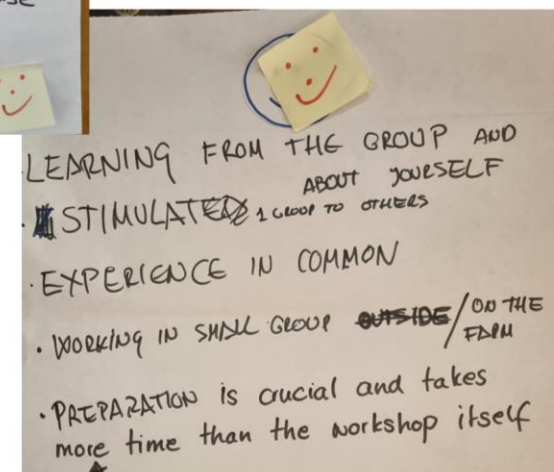 · LEARNING FROM THE GROUP AND
ABOUT YOURSELF
· STIMULATE 1 GROUP TO OTHERS
· EXPERIENCE IN COMMON
· WORKING IN SMALL GROUP OUTSIDE / ON THE
FARM
· PREPARATION is crucial and takes
more time than the workshop itself